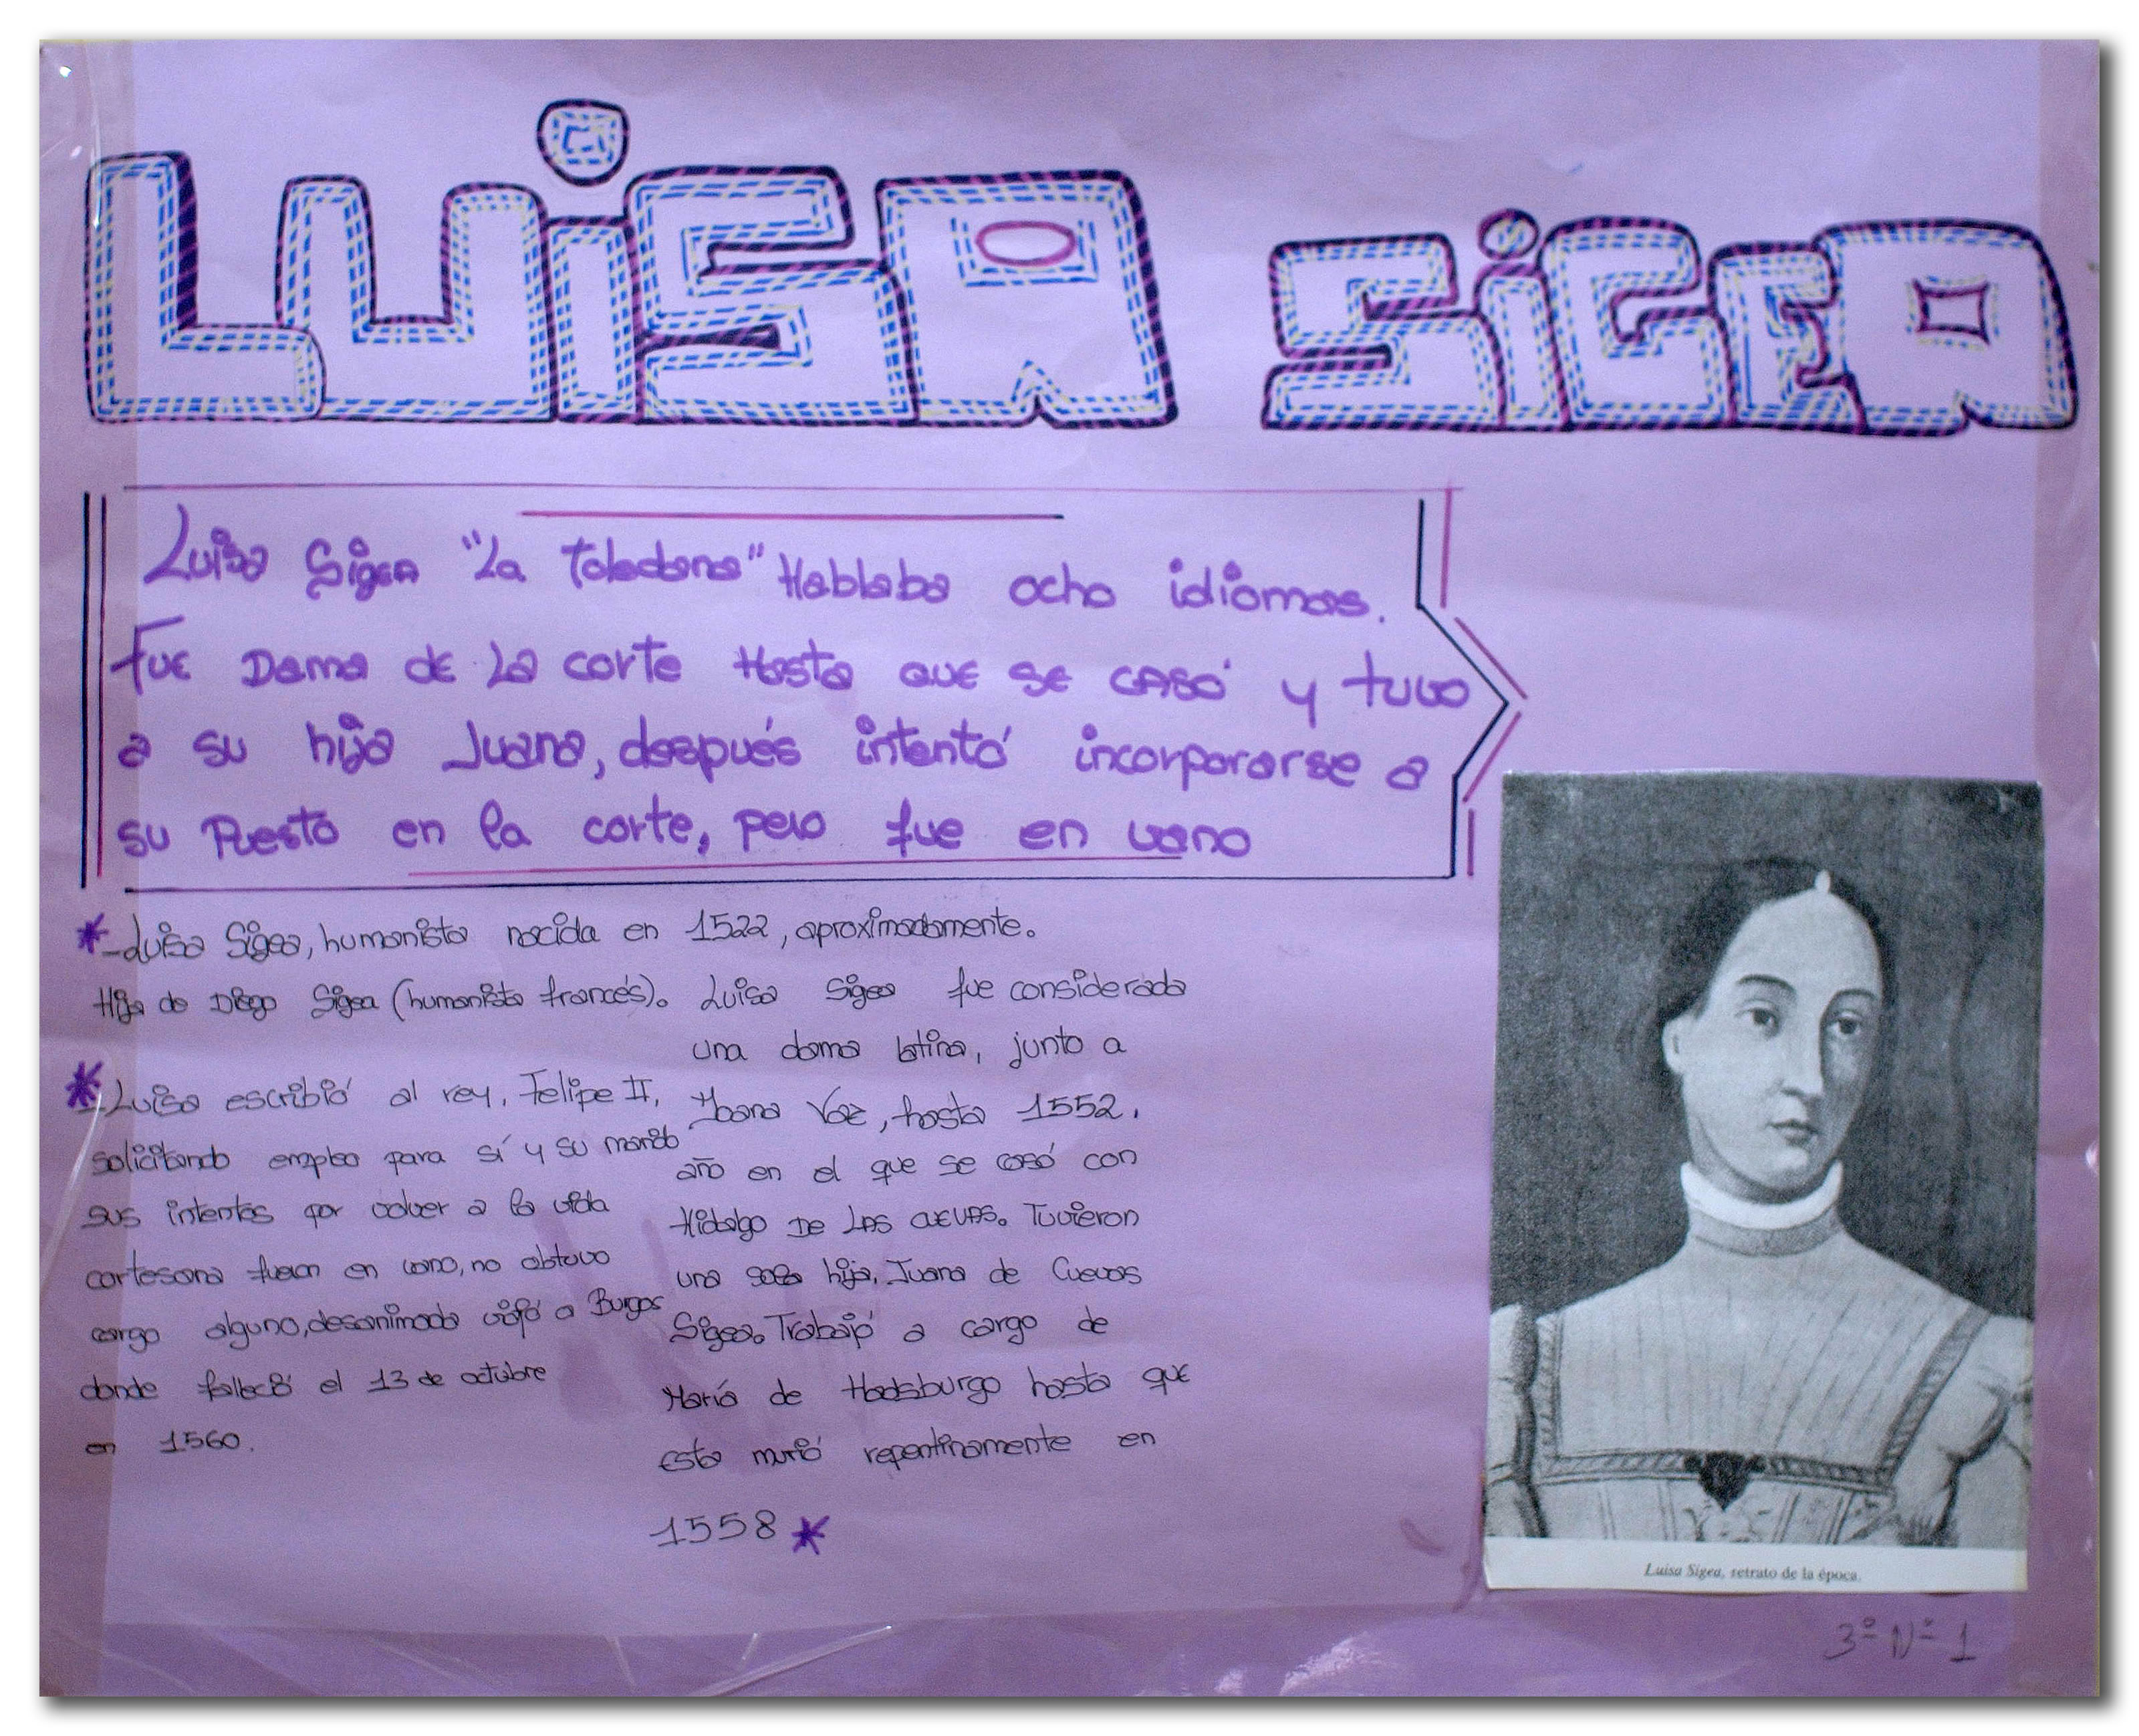 LUiSA SiGEA
Luisa Sigea "La Toledana" Hablaba ocho idiomas.
Fue Dama de La corte Hasta que se casó y tuvo
a su hija Juana, después intentó incorporarse a
su Puesto en la corte, pero fue en vano
* -Luisa Sigea, humanista nacida en 1522, aproximadamente.
Hija de Diego Sigea (humanista francés).
* -Luisa escribió al rey, Felipe II,
solicitando empleo para sí y su marido
sus intentos por volver a la vida
cortesana fueron en vano, no obtuvo
cargo alguno, desanimada viajó a Burgos
donde falleció el 13 de octubre
en 1560.
Luisa Sigea fue considerada
una dama latina, junto a
Joana Vaz, hasta 1552,
año en el que se casó con
Hidalgo De Las cuevas. Tuvieron
una sola hija, Juana de Cuevas
Sigea. Trabajó a cargo de
María de Habsburgo hasta que
esta murió repentinamente en
1558 *
Luisa Sigea, retrato de la época.
3º Nº 1